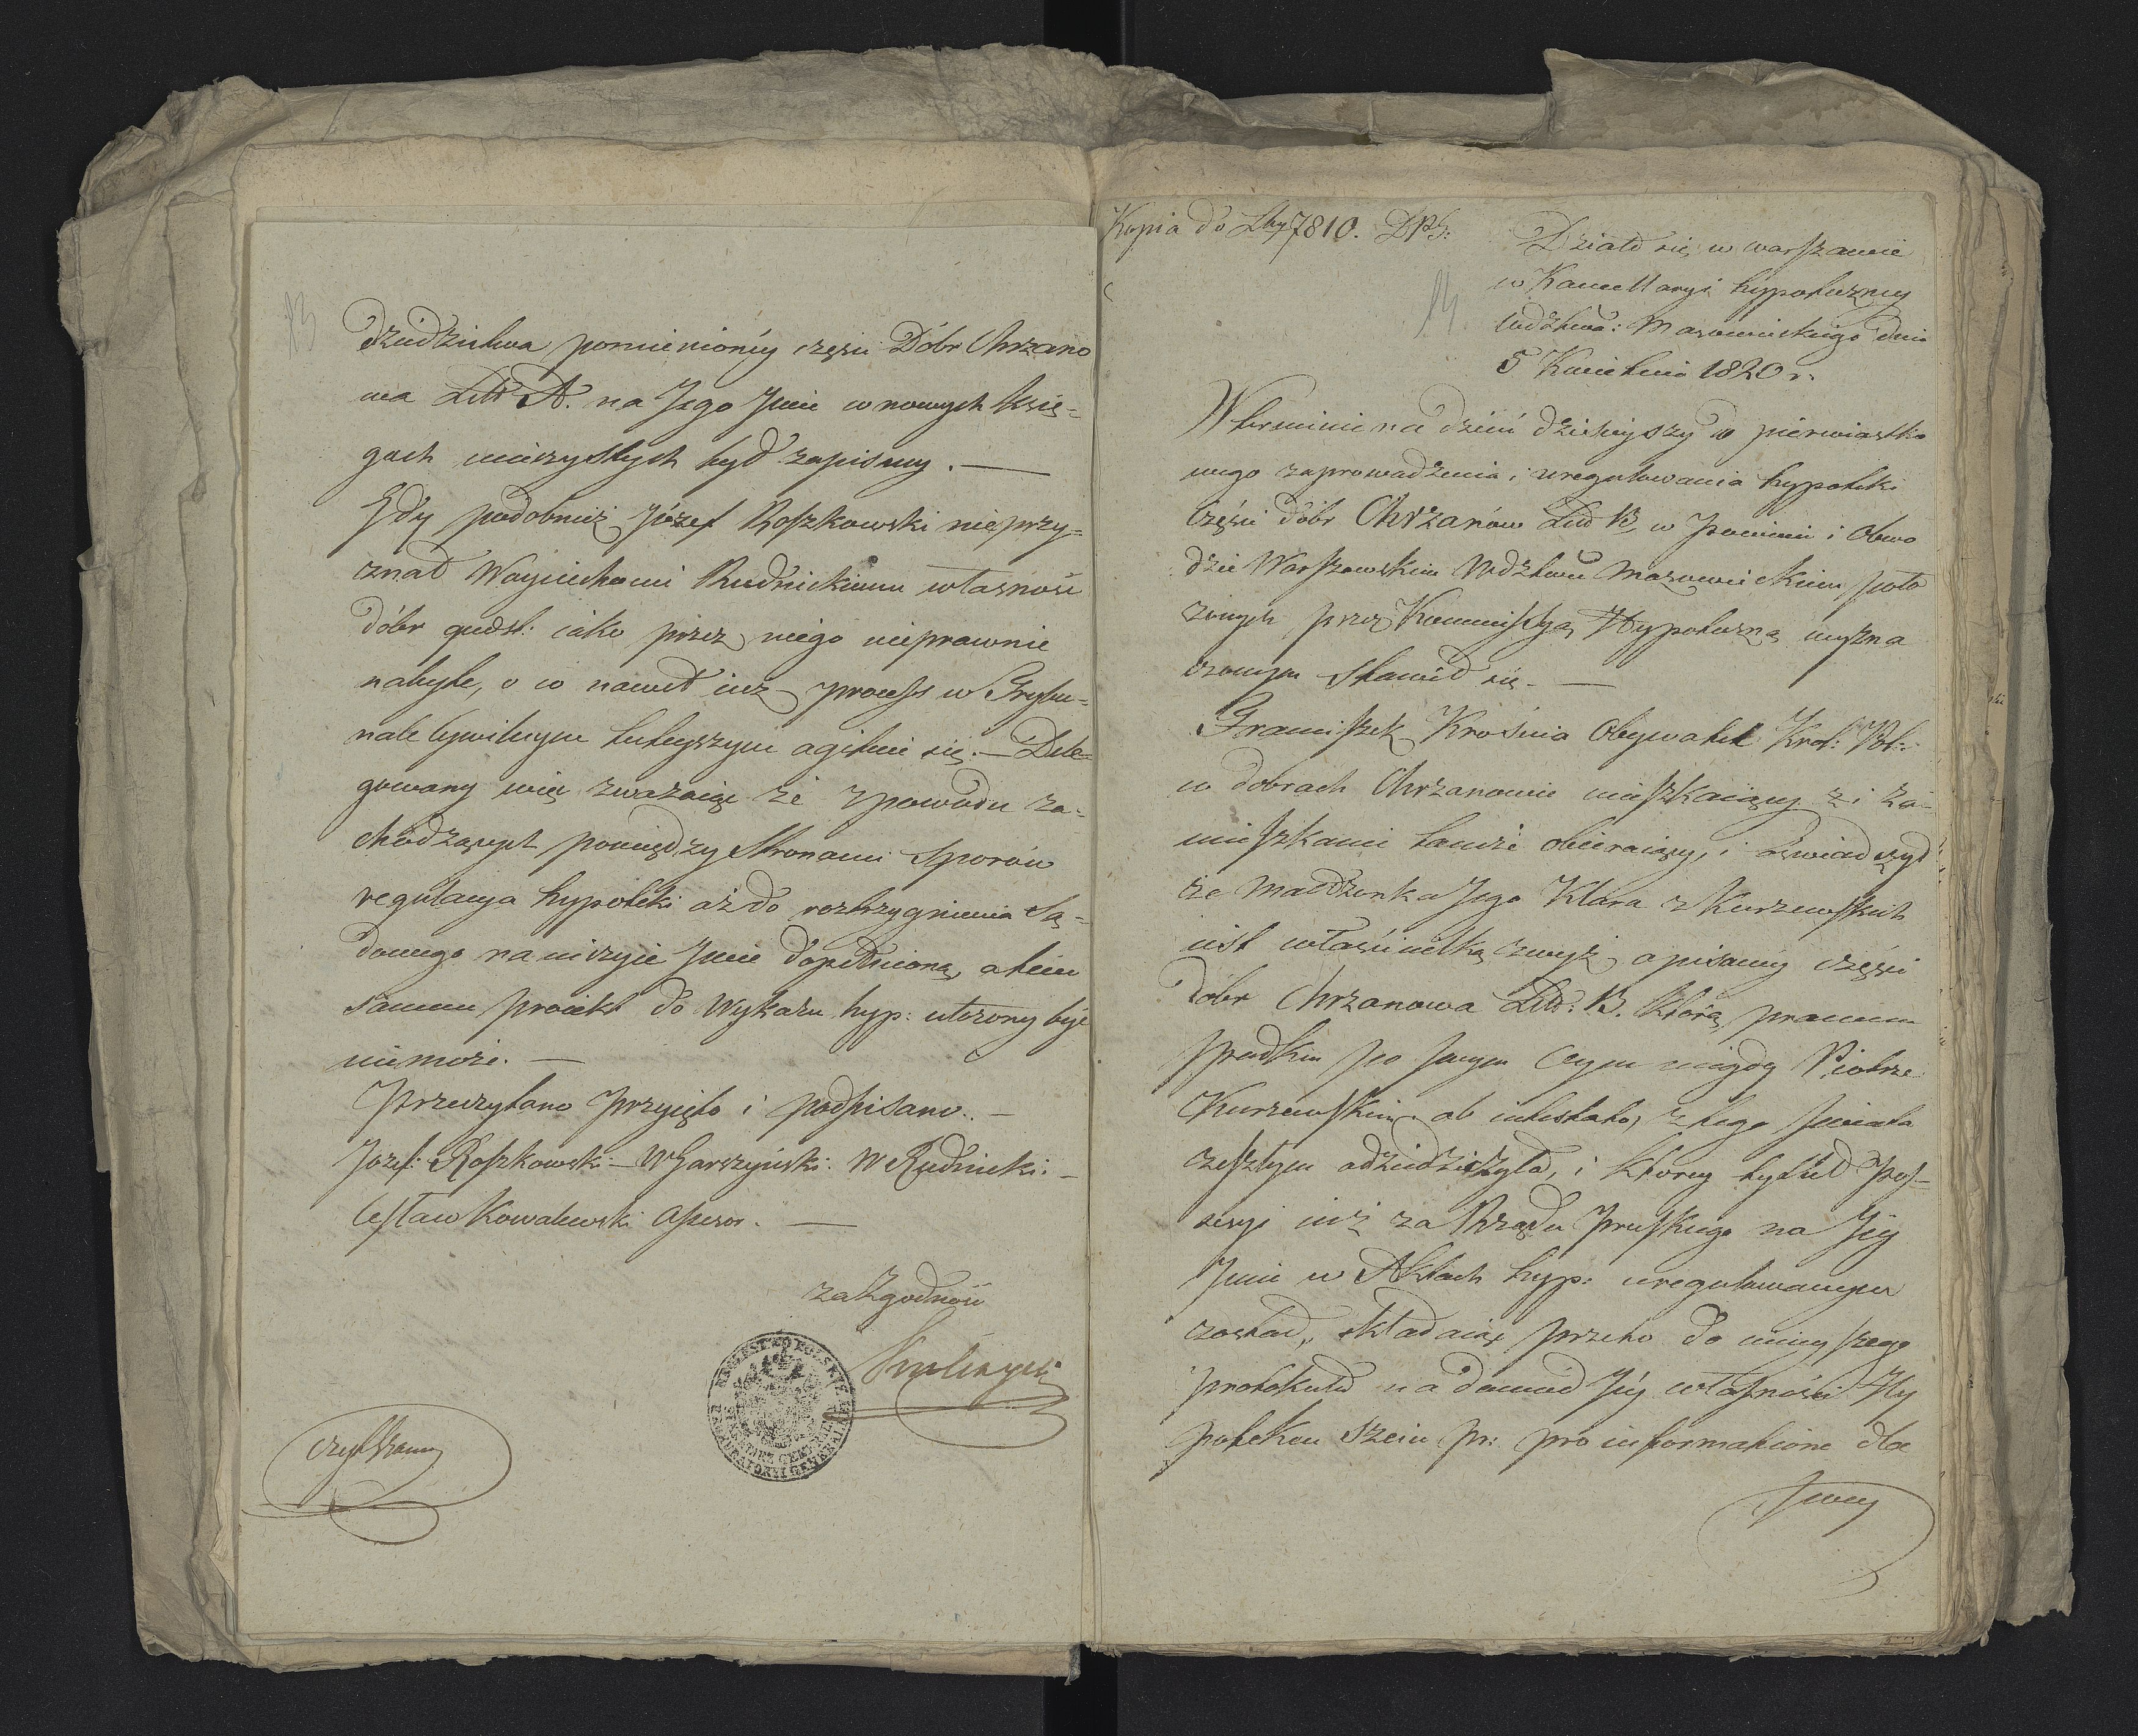 13
dziedzictwa pomienionéy części Dóbr Chrzano
wa Litt A. na Jego Jmie w nowych księ=
gach wieczystych był zapisany. —
Gdy podobnież Józef Roszkowski nieprzy=
znał Woyciechowi Rudnickiemu własność
dóbr quest: iako przez niego nieprawnie
nabyte, o co nawet iuż process w Trybu=
nale Cywilnym tuteyszym agituie się. — Dele=
gowany więc zważaiąc że z powodu za=
chodzących pomiędzy Stronami Sporów
regulacya hypoteki aż do rozstrzygnienia Są=
dowego na niczyie Jmie dopełnioną, a tém
samem proiekt do Wykazu hyp: ułożony być
niemoże. —
Przeczytano Przyięto i podpisano. —
Józef: Roszkowski — W Garszyński: W Rudnicki. —
Czesław Kowalewski Assessor. —
za Zgodność
Kopia do Lby 7810. DPS:
14.
Działo się w warszawie
w Kancellaryi hyppoteczney
Wdztwa: Mazowieckiego dnia
5 Kwietnia 1820 r.
W terminie na dzień dzisieyszy do pierwiastko
wego zaprowadzenia i uregulowania hypoteki
części dóbr Chrzanów Litt B, w Powiecie i Obwo
dzie Warszawskim Wdztwie Mazowieckiem poło
żonych przez Kommissyą Hypoteczną wyzna
czonym stawił się. —
Franciszek Krośnia Obywatel Król: Pol:
w dobrach Chrzanowie mieszkaiący i za=
mieszkanie tamże obieraiący, i oświadczył
że Małżonka Jego Klara z Kurzewskich
iest właścicielką zwyż opisaney części
dóbr Chrzanowa Litt: B. którą prawem
spadku po swym Oycu niegdy Piotrze
Kurzewskim ab intestato z tego świata
zeszłym odziedziczyła, i którey tytuł Pos=
sesyi iuż za Rządu Pruskiego na Jéy
Jmie w Aktach hyp: uregulowanym
został, składaiąc przeto do ninieyszego
protokułu na dowod Jéy własności Hy
poteken Schein pr: pro informatione dla